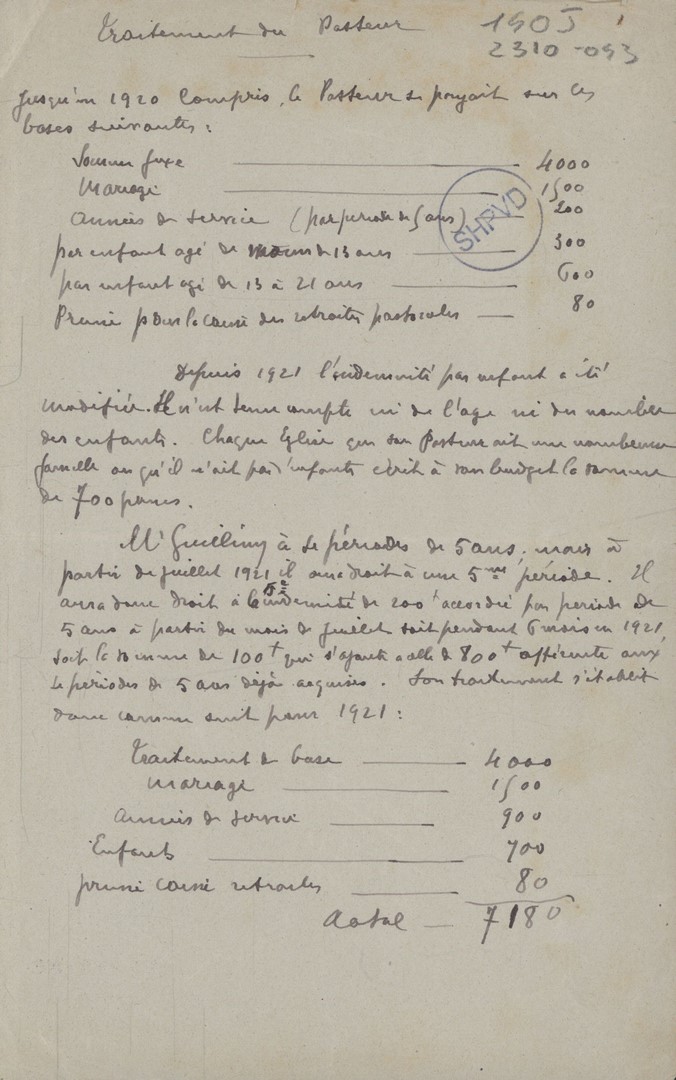 Traitement du Pasteur
1905
2310-093
Jusqu'en 1920 Compris, le Pasteur se payait sur les
bases suivantes :
Somme fixe 4000
Mariage 1500
Années de Service (par période de 5 ans) 200
SHPVD
par enfant agé de moins de 13 ans 300
par enfant agé de 13 à 21 ans 600
Prime pour la caisse des retraites pastorales 80
Depuis 1921 l'indemnité par enfant a été
modifiée. Il n'est tenu compte ni de l'age ni du nombre
des enfants. Chaque Eglise que son Pasteur ait une nombreuse
famille ou qu'il n'ait pas d'enfants écrit à son budget la somme
de 700 francs.
Mr à 4 périodes de 5 ans. mais à
partir de Juillet 1921 il aura droit à une 5me période. Il
aura donc droit à la 5e indemnité de 200f accordée par période de
5 ans à partir du mois de Juillet soit pendant 6 mois en 1921,
soit la somme de 100f qui s'ajoute à celle de 800f afférente aux
4 périodes de 5 ans déjà acquises. Son traitement s'établit
donc comme suit pour 1921 :
Traitement de base 4000
Mariage 1500
Années de Service 900
Enfants 700
prime caisse retraites 80
Total 7180